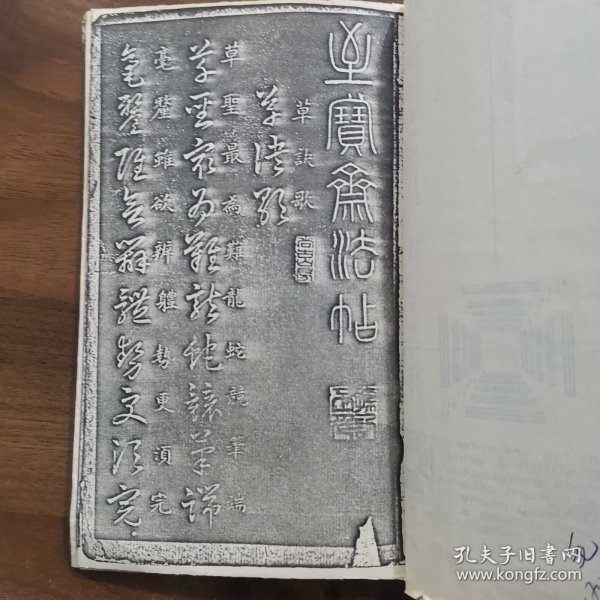 至寶齋法帖
草訣歌
草訣歌
草聖最為難龍蛇競筆端
草聖最為難龍蛇競筆端
毫釐雖欲辨體勢更須完
毫釐雖欲辨體勢更須完
孔夫子旧书网
www.kongfz.com